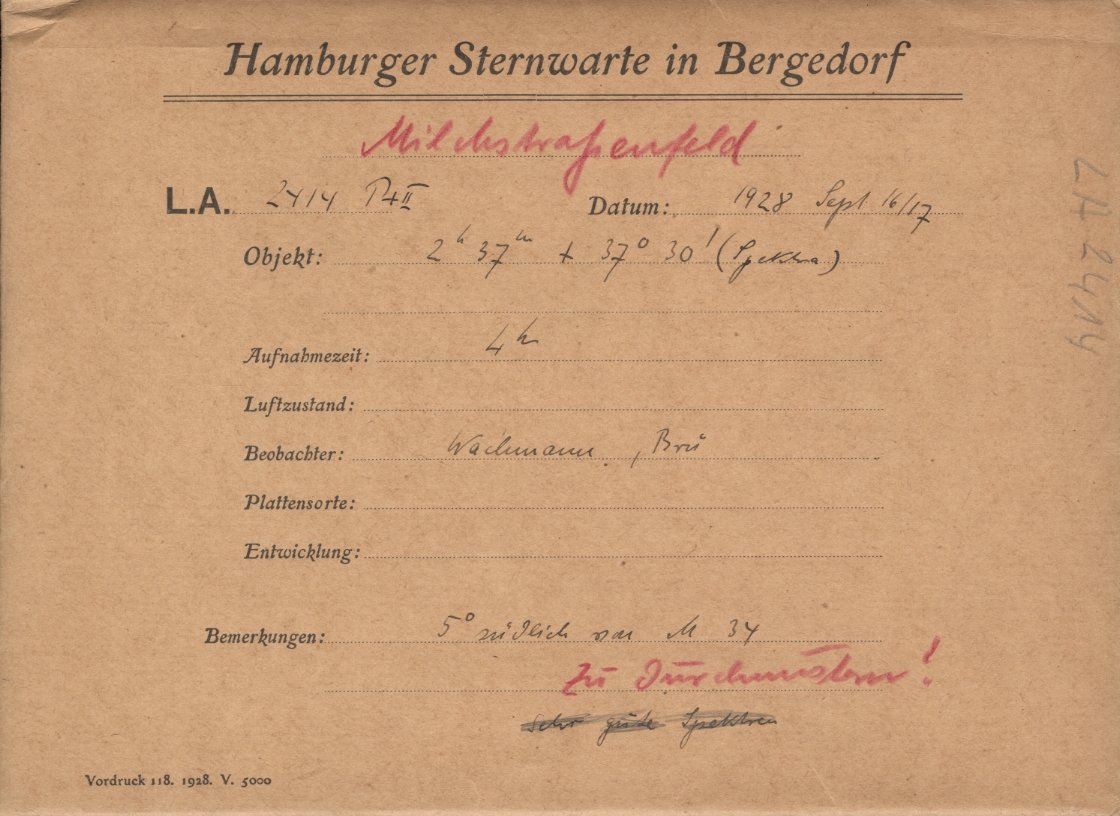 Hamburger Sternwarte in Bergedorf
Milchstraßenfeld
L.A. 2414 Pr+II Datum: 1928 Sept 16/17
Objekt: 2h 37m + 37° 30' (Spektra)
Aufnahmezeit: 4h
Luftzustand:
Beobachter: Wachmann, Brü
Plattensorte:
Entwicklung:
Bemerkungen: 5° südlich von M 34
Zu Durchmustern!
Sehr gute Spektren
Vordruck 118. 1928. V. 5000
LA 2414